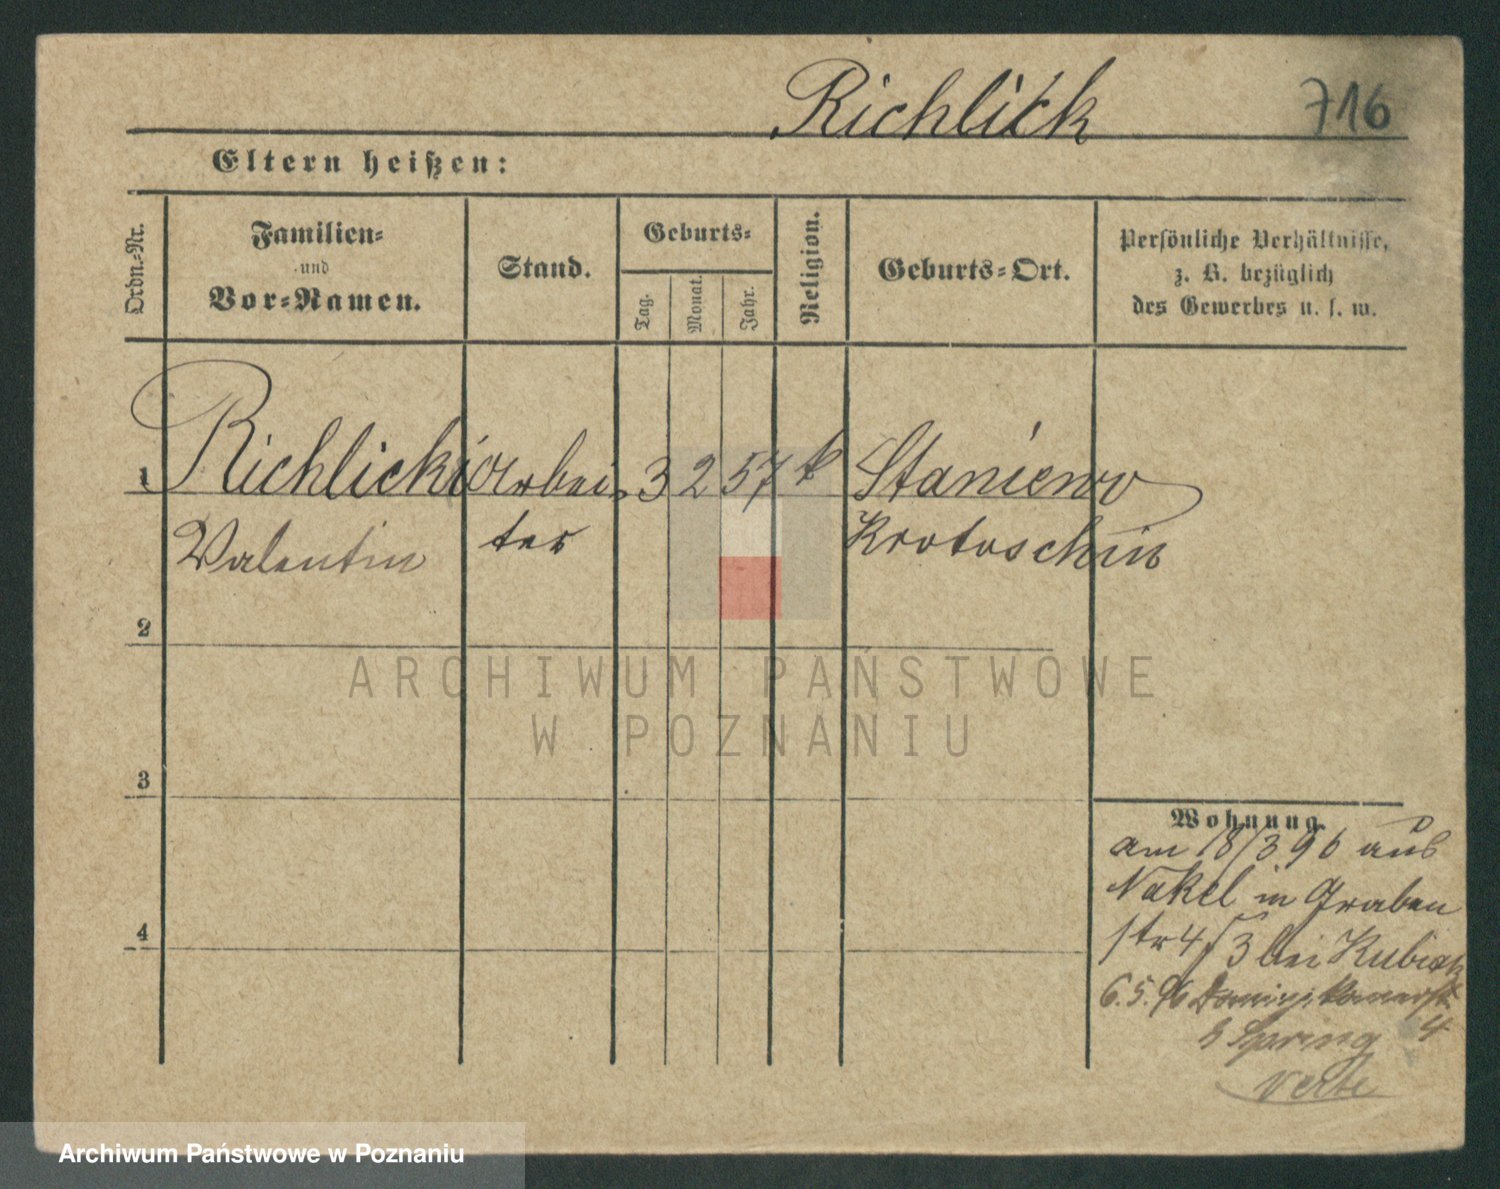 Richlick
716
Eltern heißen:
Ordn.-Nr.
Familien-
und
Vor-Namen.
Stand.
Geburts-
Tag.
Monat.
Jahr.
Religion.
Geburts-Ort.
Persönliche Verhältnisse,
z. B. bezüglich
des Gewerbes u. s. w.
1 Richlicki Arbei- 3 2 57 k Staniewo
Valentin ter Krotoschin
2
3
4
ARCHIWUM PAŃSTWOWE
W POZNANIU
Wohnung.
am 18/3 96 aus
Nakel in Graben
str 4 3 bei Kubiak
6.5.96 Dominikanerstr.
4
Verte
Archiwum Państwowe w Poznaniu